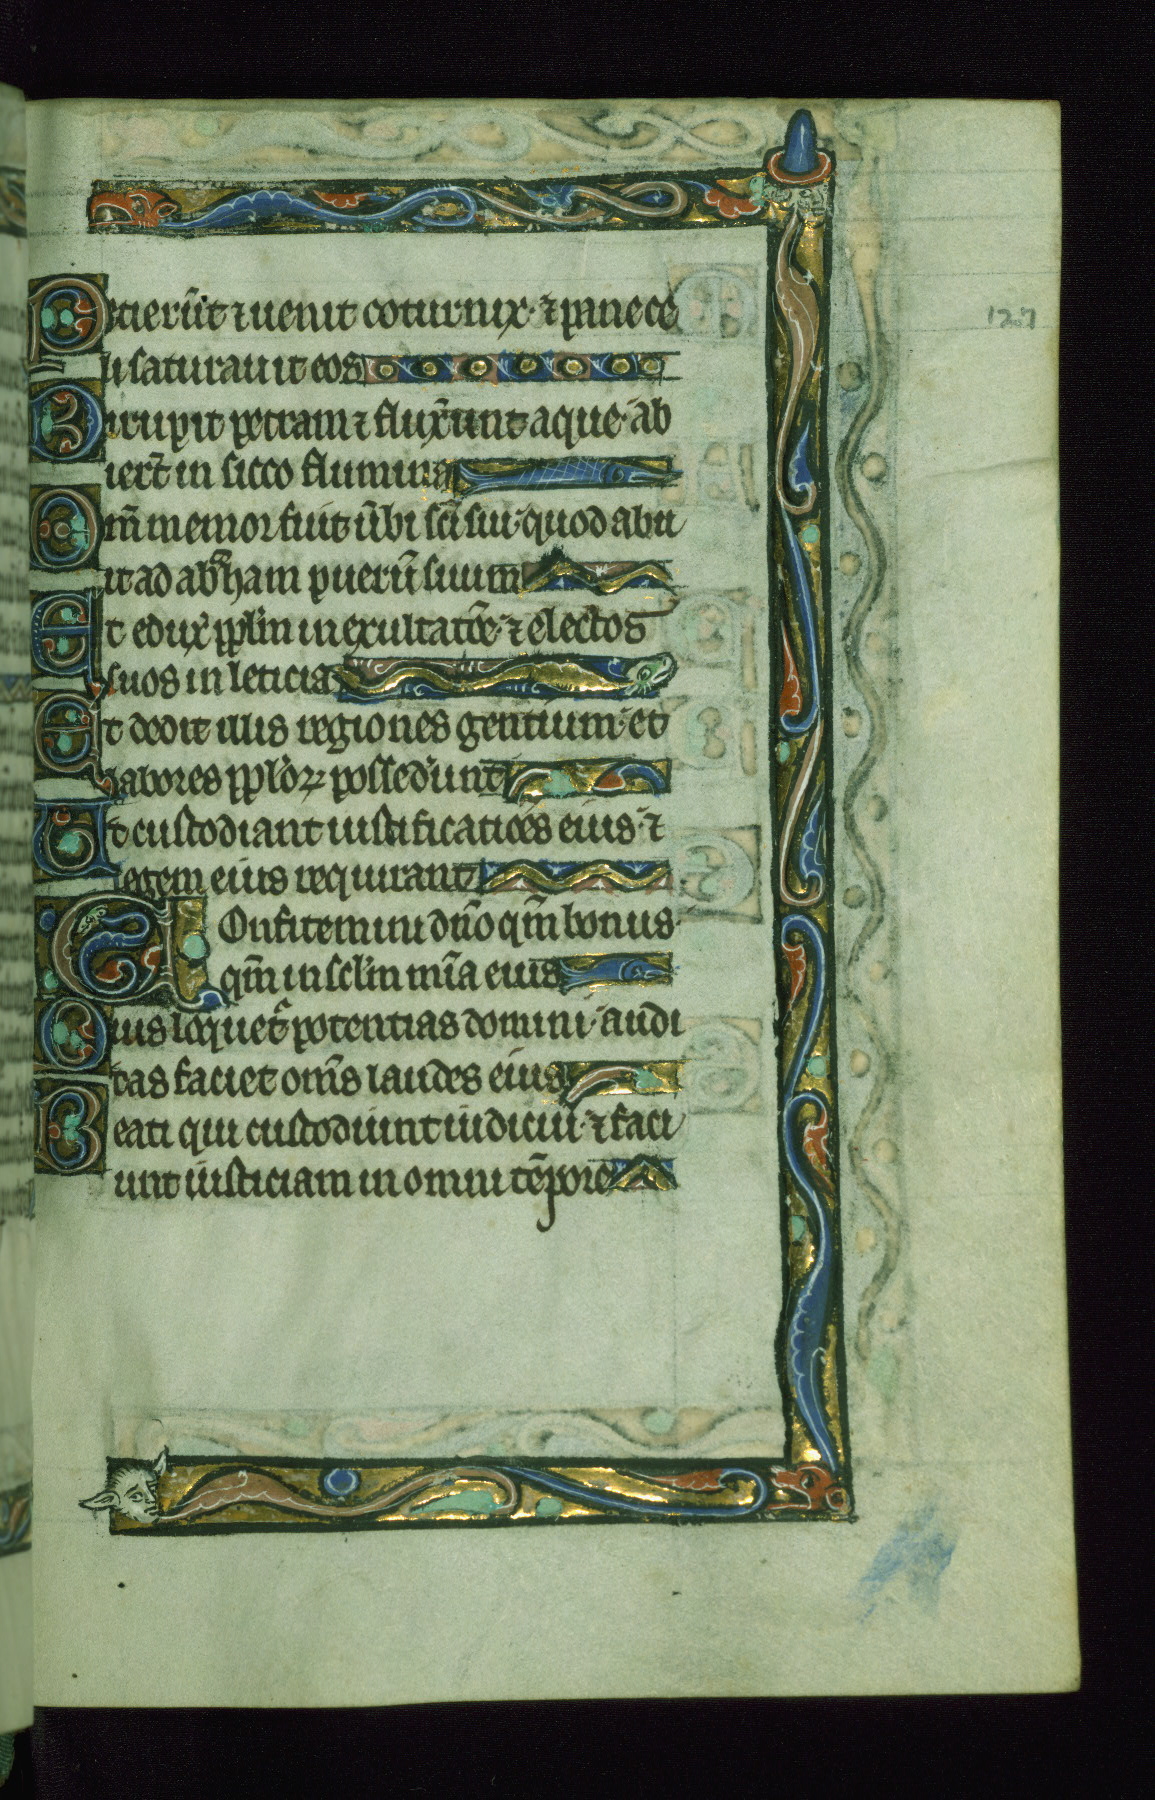 Petierūt ⁊ uenit coturnix· ⁊ pane ce
li saturauit eos
Dirupit petram ⁊ flux̄unt aque· ab
iert̄ in sicco flumina
Qm̄ memor fuit ūbi scī sui· quod abu
it ad abͣham puerū suum
Et edux̄ ppl̄m in exultatōe· ⁊ electos
suos in leticia
Et dedit illis regiones gentium· et
labores ppl̄oꝝ possed̄unt
Ut custodiant iustificatiōes eius· ⁊
legem eius requirant
COnfitemini dn̄o qm̄ bonus·
qm̄ in scl̄m mīa eius
Quis loquetᷣ potentias domini· audi
tas faciet om̄s laudes eius
Beati qui custodiunt iudiciū· ⁊ faci
unt iusticiam in omni tēpore
127